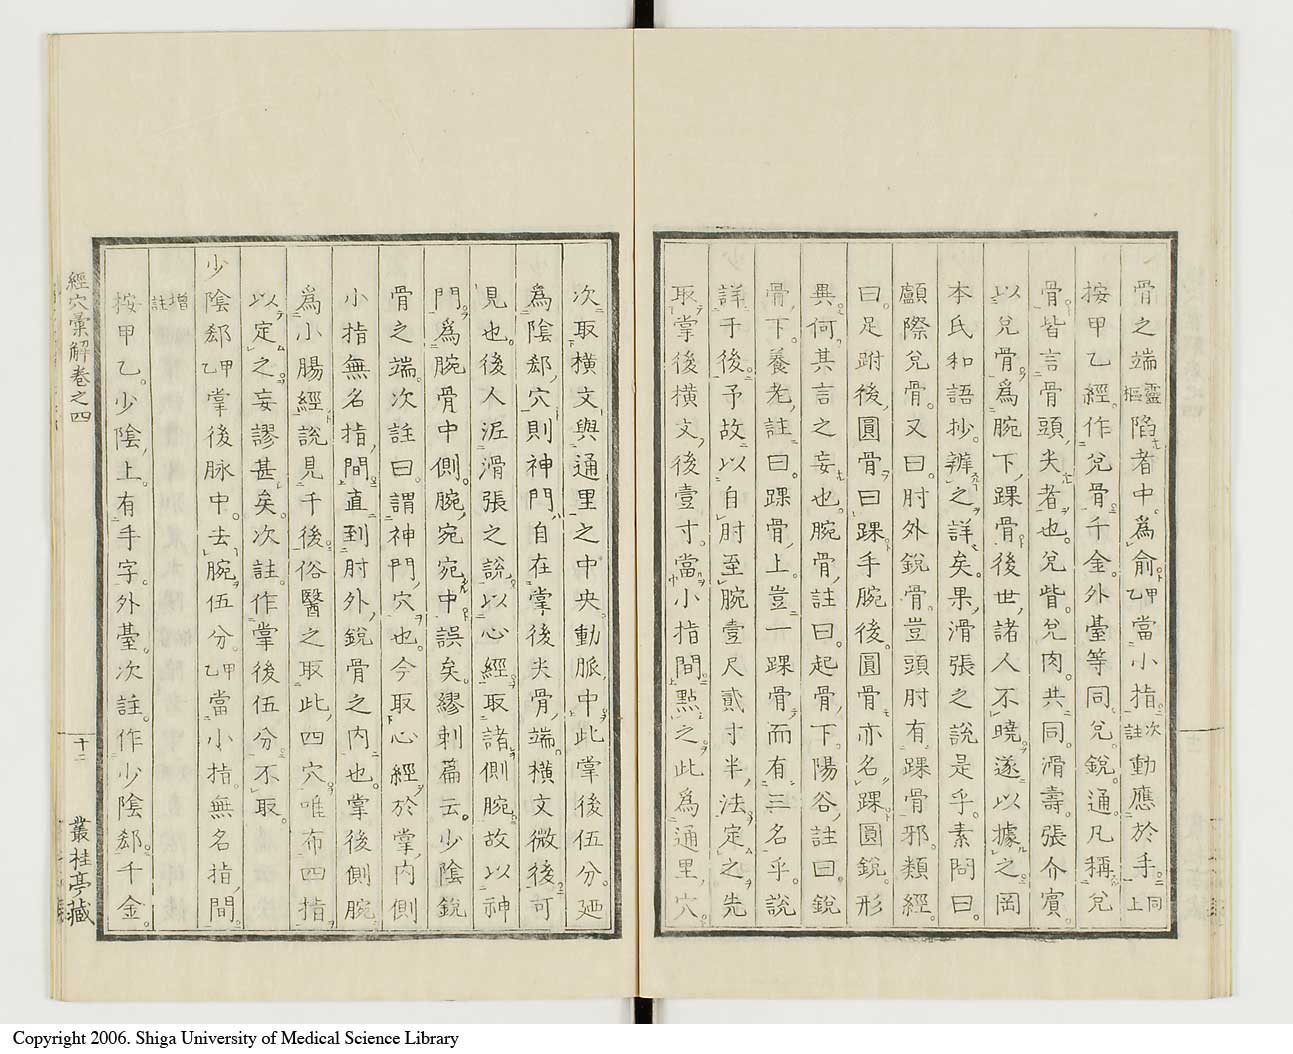 骨之端靈樞陷者中爲俞甲乙當小指次註動應於手同上
按甲乙經作兌骨千金外臺等同兌銳通凡稱兌
骨皆言骨頭尖者也兌眥兌肉共同滑壽張介賓
以兌骨爲腕下踝骨後世諸人不曉遂以據之岡
本氏和語抄辨之詳矣果滑張之說是乎素問曰
顱際兌骨又曰肘外銳骨豈頭肘有踝骨邪類經
曰足跗後圓骨曰踝手腕後圓骨亦名踝圓銳形
異何其言之妄也腕骨註曰起骨下陽谷註曰銳
骨下養老註曰踝骨上豈一踝骨而有三名乎說
詳于後予故以自肘至腕壹尺貳寸半法定之先
取掌後橫文後壹寸當小指間點之此爲通里穴
次取橫文與通里之中央動脈中此掌後伍分廼
爲陰郄穴則神門自在掌後尖骨端橫文微後可
見也後人泥滑張之說以心經取諸側腕故以神
門爲腕骨中側腕宛宛中誤矣繆刺篇云少陰銳
骨之端次註曰謂神門穴也今取心經於掌內側
小指無名指間直到肘外銳骨之內也掌後側腕
爲小腸經說見千後俗醫之取此四穴唯布四指
以定之妄謬甚矣次註作掌後伍分不取
少陰郄甲乙掌後脉中去腕伍分甲乙當小指無名指間
增註
按甲乙少陰上有手字外臺次註作少陰郄千金
經穴彙解卷之四
十二
叢桂亭藏
Copyright 2006. Shiga University of Medical Science Library